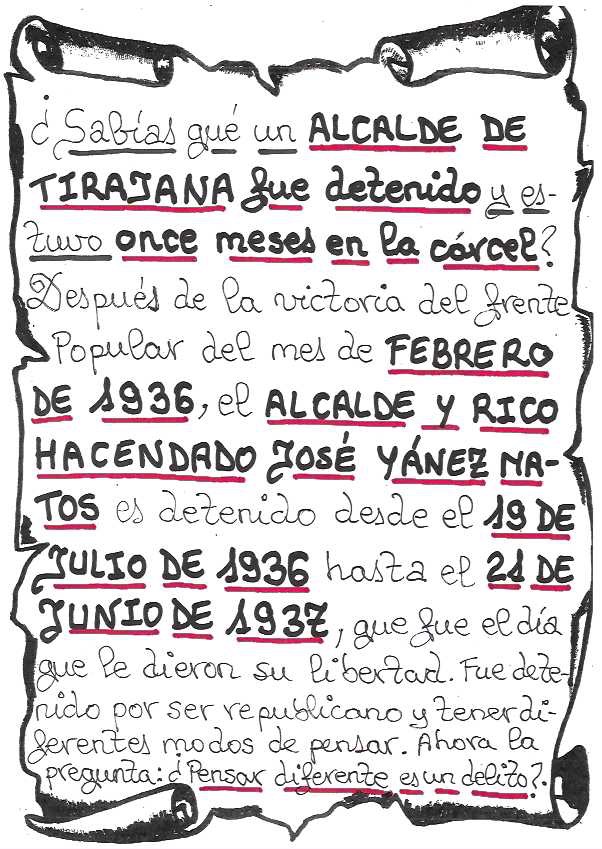 ¿Sabías qué un ALCALDE DE
TIRAJANA fue detenido y es-
tuvo once meses en la cárcel?
Después de la victoria del frente
Popular del mes de FEBRERO
DE 1936, el ALCALDE Y RICO
HACENDADO JOSÉ YÁNEZ MA-
TOS es detenido desde el 19 DE
JULIO DE 1936 hasta el 21 DE
JUNIO DE 1937, que fue el día
que le dieron su libertad. Fue dete-
nido por ser republicano y tener di-
ferentes modos de pensar. Ahora la
pregunta: ¿Pensar diferente es un delito?.